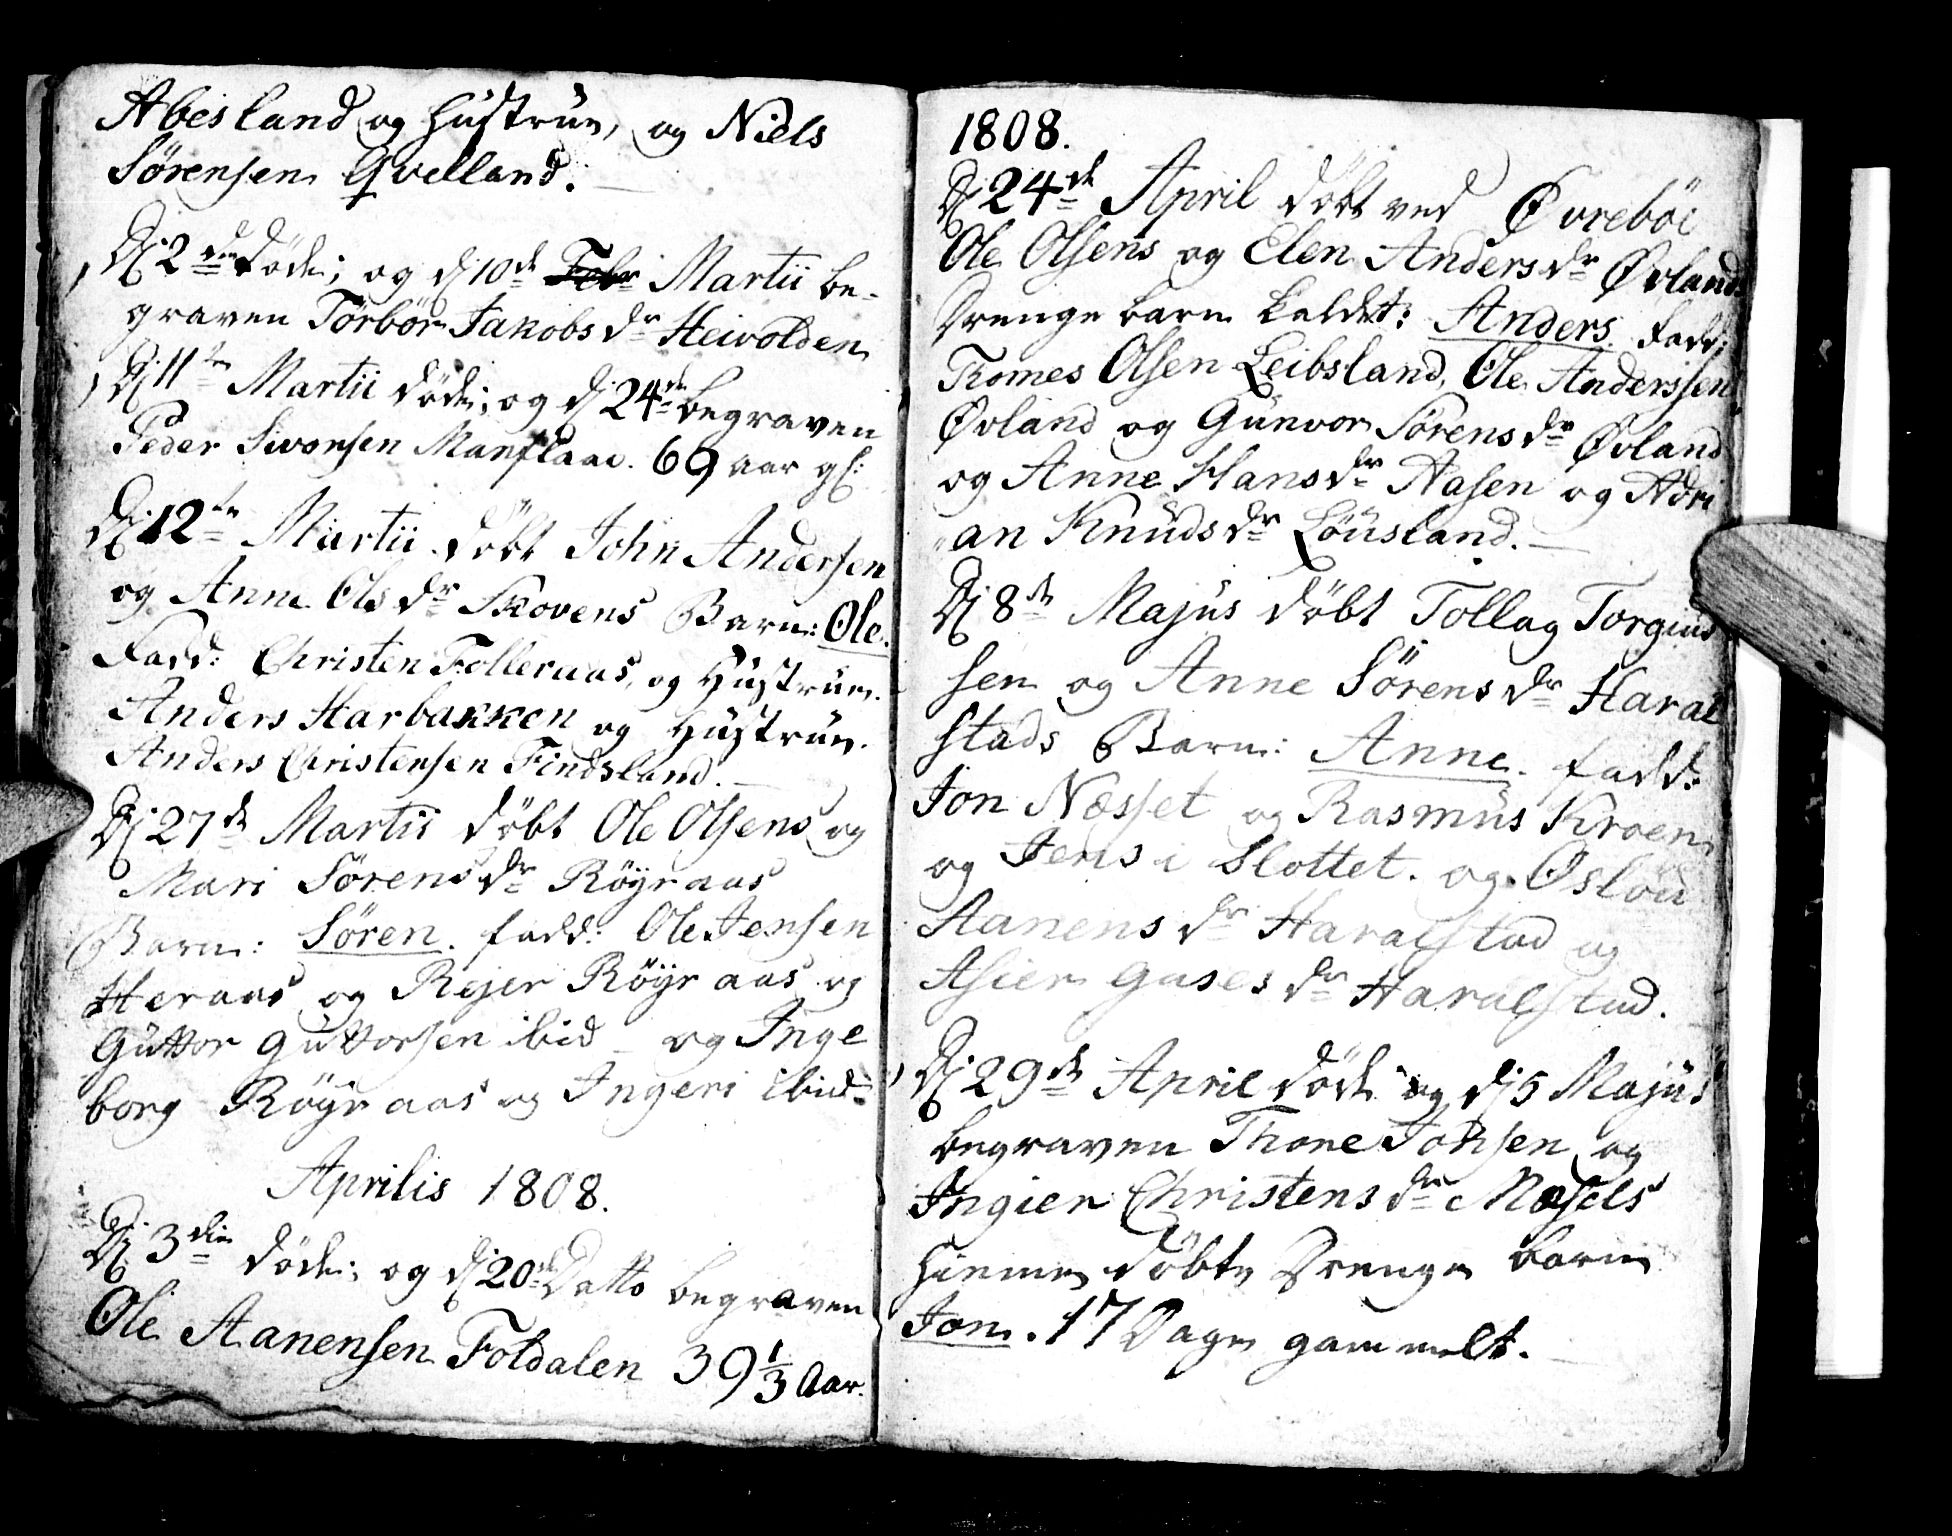 Abesland og Hustrue, og Niels
Sørensen Qvelland.
D. 2den døde; og d. 10de Febr Martii be-
graven Torbor Jakobs dr Heivolden
D. 11te Martii døde; og d. 24de begraven
Peder Sivonsen Manflaae. 69 aar gl:
D. 12te Martii døbt John Andersen
og Anne Ols dr Skovens Barn: Ole.
Fadd: Christen Folleraas, og Hustrue.
Anders Harbakken og Hustrue.
Anders Christensen Findsland.
D. 27de Martii døbt Ole Olsens og
Mari Sørens dr Röyraas
Barn: Søren. fadd: Ole Jensen
Heraas og Rejer Röyraas og
Guttor Guttorsen ibid og Inge
borg Röyraas og Ingeri ibid:
Aprilis 1808.
D. 3die døde; og d. 20de Datto begraven
Ole Aanensen Foldalen 39 1/3 Aar.
1808.
D. 24de April døbt ved Øvreböe
Ole Olsens og Elen Anders dr Øvland
Drenge barn kaldet: Anders. fadd:
Thomes Olsen Leibsland, Ole Anderssen
Øvland og Gunvor Sørens dr Øvland
og Anne Hans dr Aasen og Adri
an Knuds dr Löusland.
D. 8de Majus døbt Tollag Torgius
sen og Anne Sørens dr Haral
stads Barn: Anne. fadd:
Jon Næsset og Rasmus Kroen
og Jens i Slottet. og Oslöu
Aanens dr Haralstad og
Asier Gases dr Haralstad.
D. 29de April døde og d. 5 Majus
begraven Thore Johsen og
Ingier Christens dr Mæsels
hiemme døbte Drenge barn
Jon. 17 Dage gammelt.